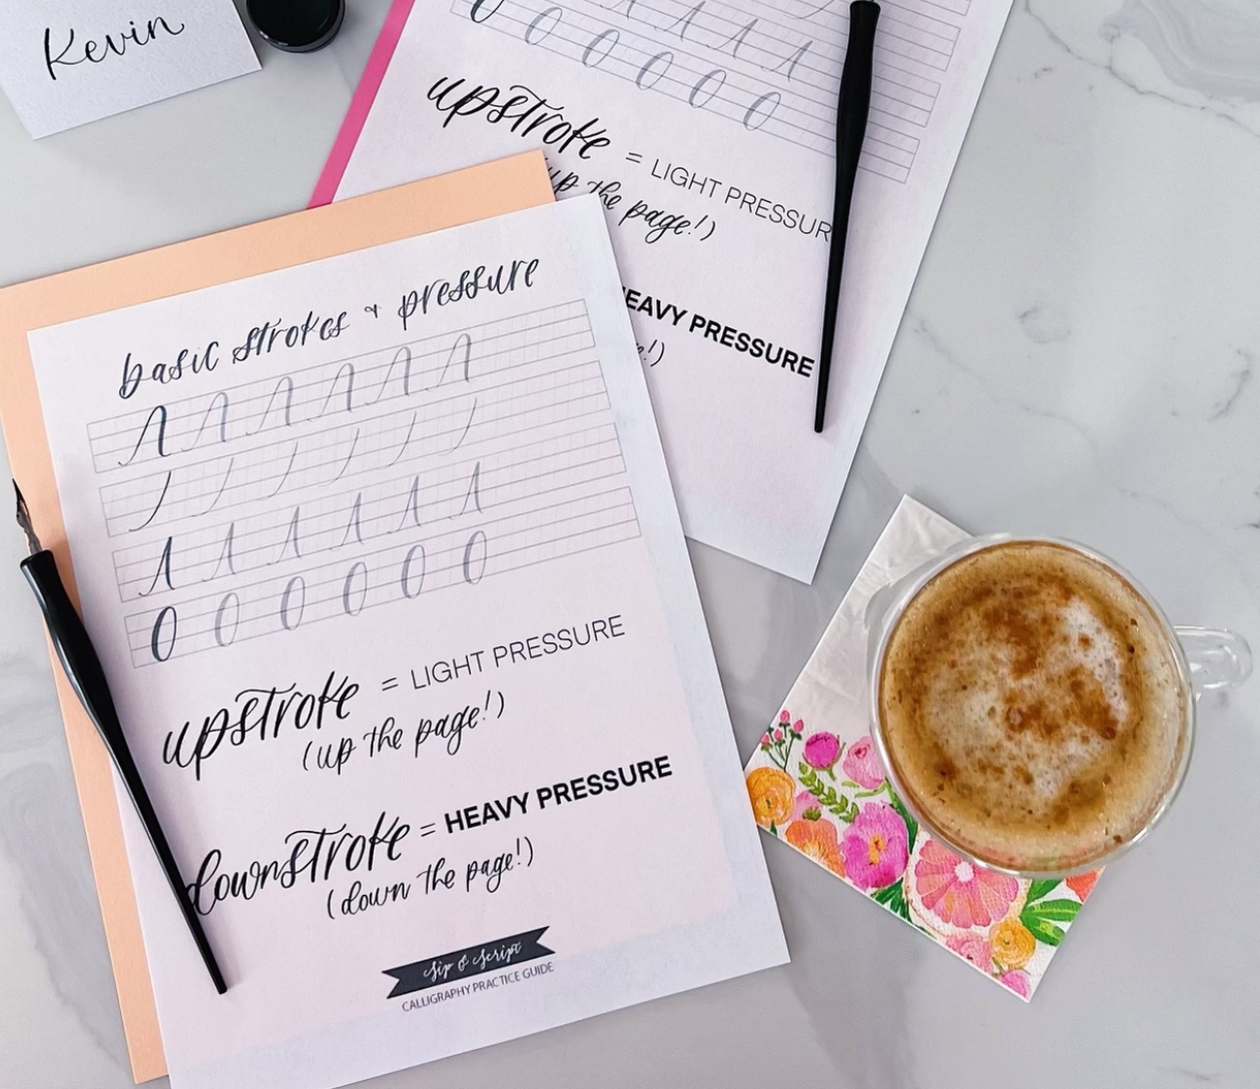 Kevin
upstroke = LIGHT PRESSUR
up the page!)
HEAVY PRESSURE
!)
basic strokes + pressure
upstroke = LIGHT PRESSURE
(up the page!)
downstroke = HEAVY PRESSURE
(down the page!)
Sip & Script
CALLIGRAPHY PRACTICE GUIDE